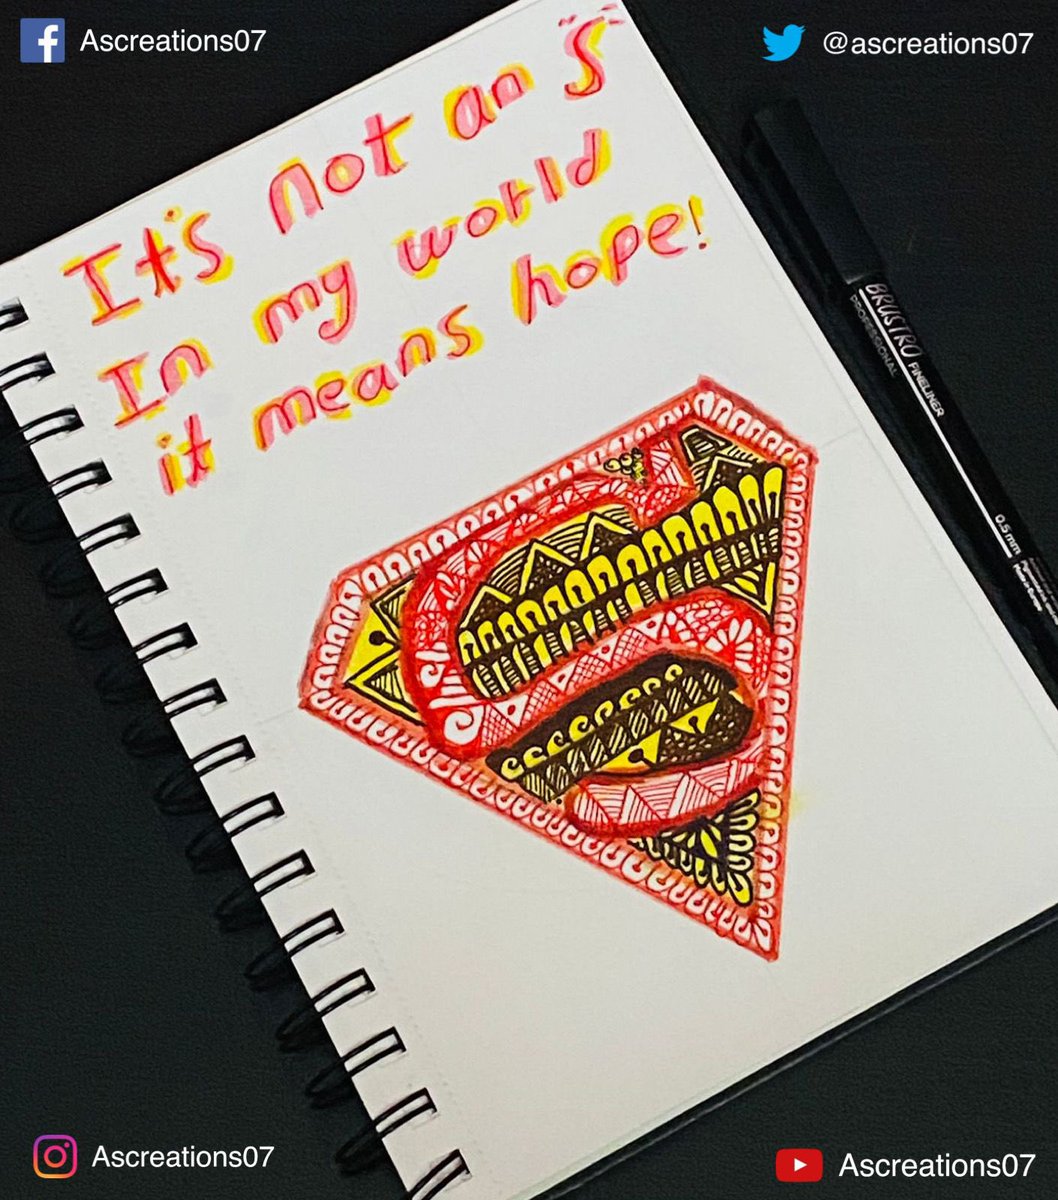 Ascreations07
@ascreations07
It's not an S
In my world
it means hope!
BRUSTRO FINELINER
PROFESSIONAL
0.5 mm
Ascreations07
Ascreations07